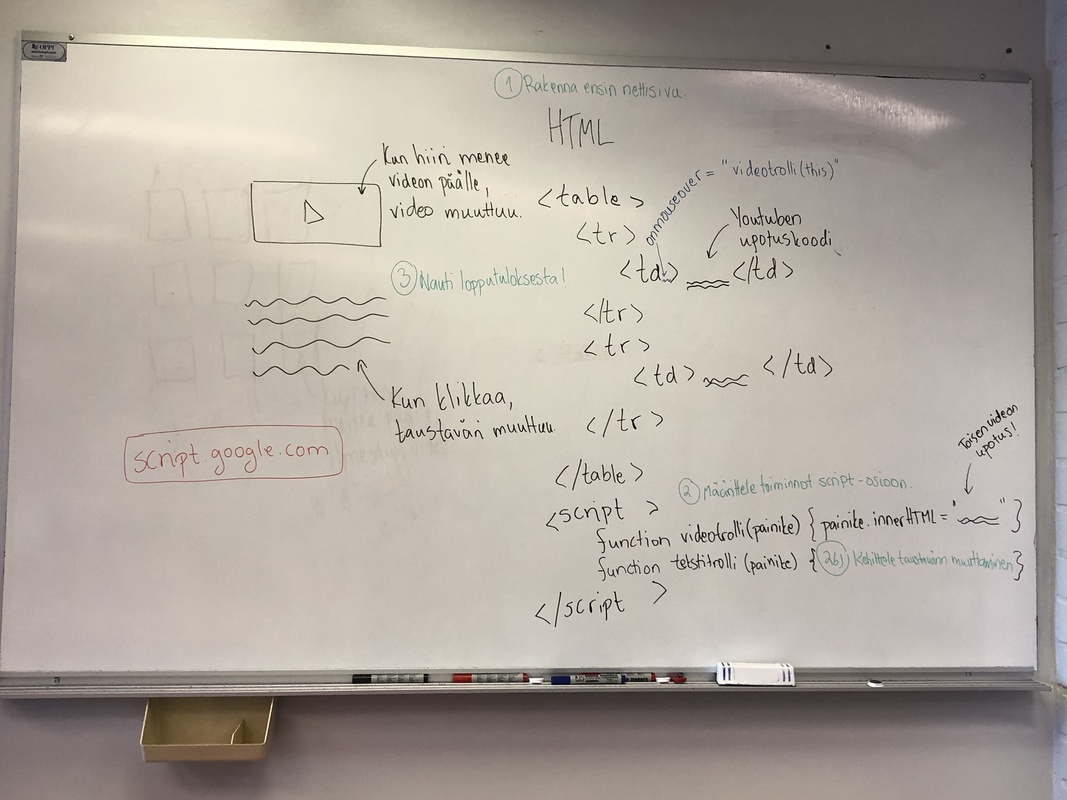 ① Rakenna ensin nettisivu.
HTML
Kun hiiri menee
videon päälle,
video muuttuu.
③ Nauti lopputuloksesta!
Kun klikkaa,
taustaväri muuttuu.
script.google.com
<table>
<tr>
onmouseover = "videotrolli(this)"
Youtuben
upotuskoodi
<td> </td>
</tr>
<tr>
<td> </td>
</tr>
</table>
② Määrittele toiminnot script-osioon.
<script>
Toisen videon
upotus!
function videotrolli(painike) { painike.innerHTML = " " }
function tekstitrolli (painike) { 2b) Kehittele taustavärin muuttaminen }
</script>